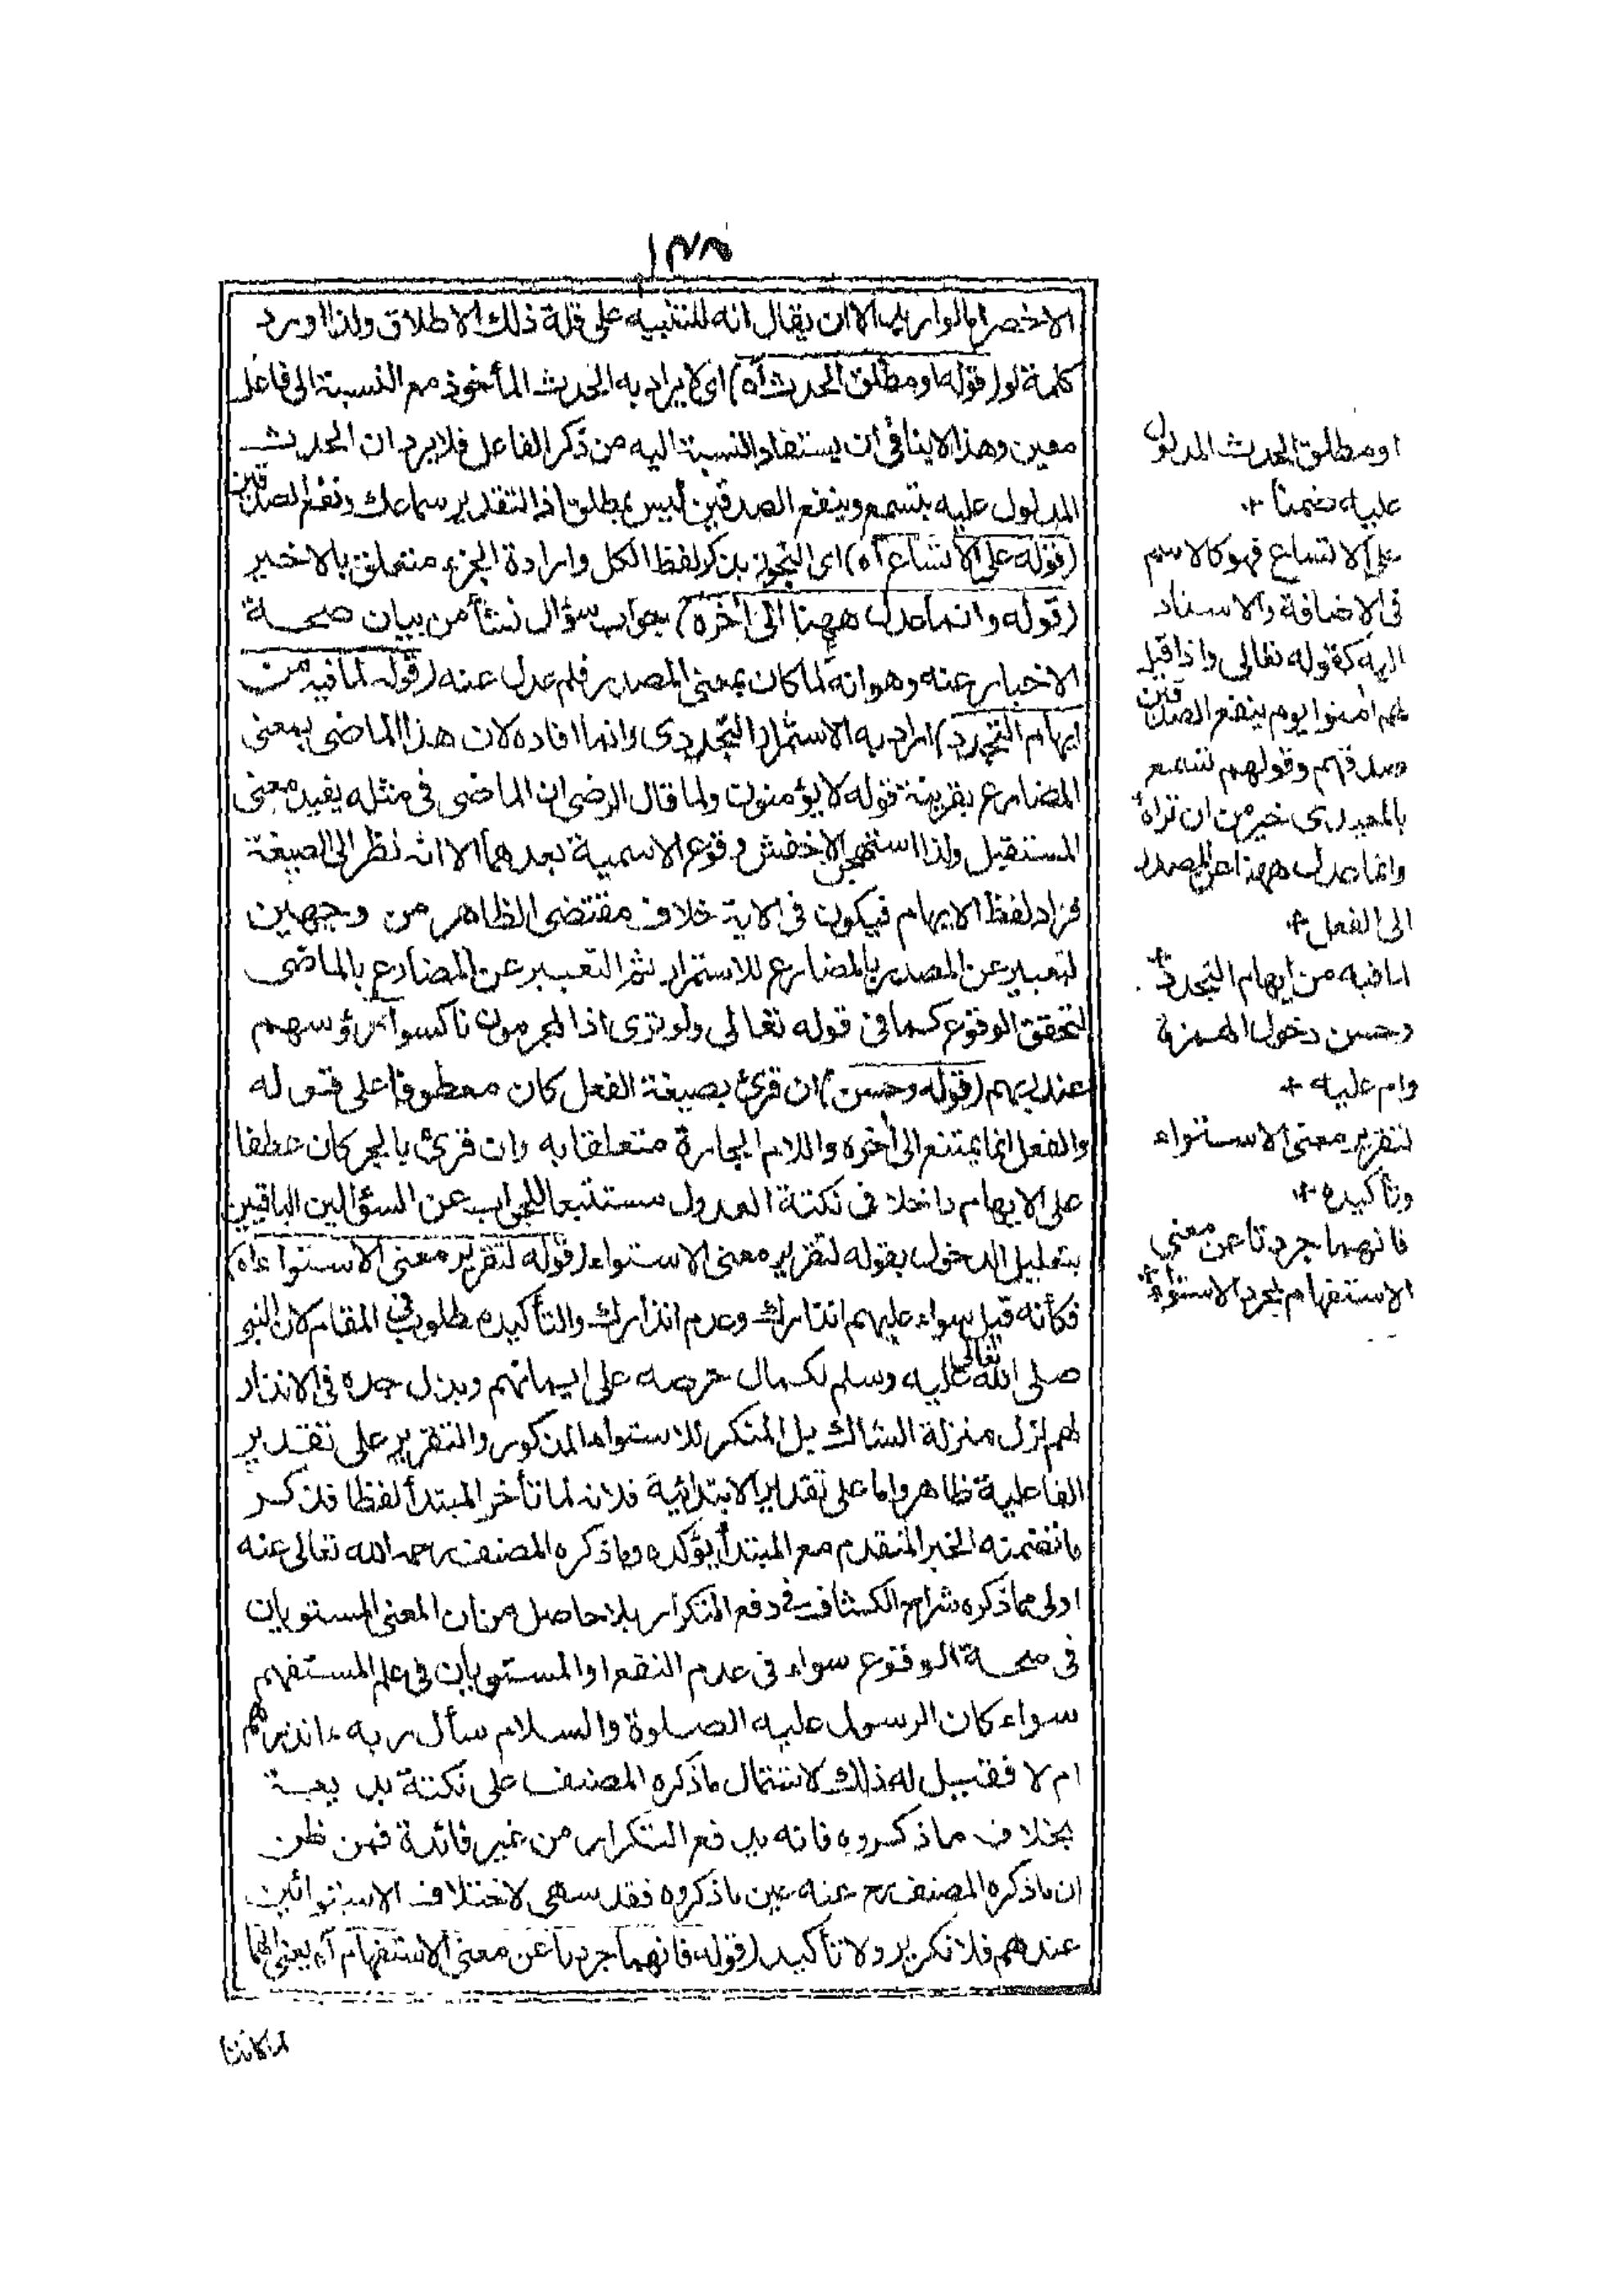 الاخصر ايرادها الا ان يقال انه للتنبيه على قلة ذلك الاطلاق ولذا اورد
كلمة لو (قوله او مطلق الحدث آه) اى لا يراد به الحدث المأخوذ مع النسبة الى فاعل
معين وهذا لا ينافى ان يستفاد النسبة اليه من ذكر الفاعل فلا يرد ان الحدث
المدلول عليه بتسمع وينفع الصدقين ليس بمطلق اذ التقدير سماعك ونفع الصدقين
(قوله على الاتساع آه) اى التجوز بذكر لفظ الكل وارادة الجزء متعلق بالاخير
(قوله وانما عدل ههنا الى أخره) جواب سؤال نشأ من بيان صحة
الاخبار عنه وهو انه لما كان بمعنى المصدر فلم عدل عنه (قوله لما فيه من
ايهام التجدد) اراد به الاستمرار التجددى وانما افاده لان هذا الماضى بمعنى
المضارع بقرينة قوله لا يؤمنون ولما قال الرضى ان الماضى فى مثله يفيد معنى
المستقبل ولذا استهجن الاخفش وقوع الاسمية بعدهما الا انه نظر الى الصيغة
فزاد لفظ الايهام فيكون فى الاية خلاف مقتضى الظاهر من وجهين
لتعبير عن المصدر بالمضارع للاستمرار ثم التعبير عن المضارع بالماضى
لتحقق الوقوع كما فى قوله تعالى ولو ترى اذ المجرمون ناكسوا رؤسهم
عند ربهم (قوله وحسن) ان قرئ بصيغة الفعل كان معطوفا على قوله
والفعل انما يمتنع الى أخره واللام الجارة متعلقا به وان قرئ بالجر كان عطفا
على الايهام داخلا فى نكتة العدول مستتبعا للجواب عن السؤالين الباقيين
بتعليل الدخول بقوله لتقرير معنى الاستواء (قوله لتقرير معنى الاستواء آه)
فكأنه قيل سواء عليهم انذارك وعدم انذارك والتأكيد مطلوب فى المقام لان النبى
صلى الله تعالى عليه وسلم لكمال حرصه على ايمانهم وبذل جده فى الانذار
لهم نزل منزلة الشاك بل المنكر للاستواء المذكور والتقرير على تقدير
الفاعلية ظاهر واما على تقدير الابتدائية فلانه لما تأخر المبتدأ لفظا فذكر
ما تضمنه الخبر المتقدم مع المبتدأ يؤكده وما ذكره المصنف رحمه الله تعالى عنه
اولى مما ذكره شراح الكشاف فى دفع التكرار بلا حاصل من ان المعنى المستويان
فى صحة الوقوع سواء فى عدم النفع او المستويان فى علم المستفهم
سواء كان الرسول عليه الصلوة والسلام سأل ربه ءانذرهم
ام لا فقيل له ذلك لاشتمال ما ذكره المصنف على نكتة بديعة
بخلاف ما ذكروه فانه يدفع التكرار من غير فائدة فمن ظن
ان ما ذكره المصنف رح عنه عين ما ذكروه فقد سهى لاختلاف الاستوائين
عندهم فلا تكرير ولا تأكيد (قوله فانهما جردتا عن معنى الاستفهام آه) يعنى انهما
او مطلق الحدث المدلول
عليه ضمنا +
على الاتساع فهو كالاسم
فى الاضافة والاسناد
اليه كقوله تعالى واذا قيل
لهم أمنوا يوم ينفع الصدقين
صدقهم وقولهم تسمع
بالمعيدى خير من ان تراه
وانما عدل ههنا عن المصدر
الى الفعل +
لما فيه من ايهام التجدد +
وحسن دخول الهمزة
وام عليه +
لتقرير معنى الاستواء
وتأكيده +
فانهما جردتا عن معنى
الاستفهام لمجرد الاستواء +